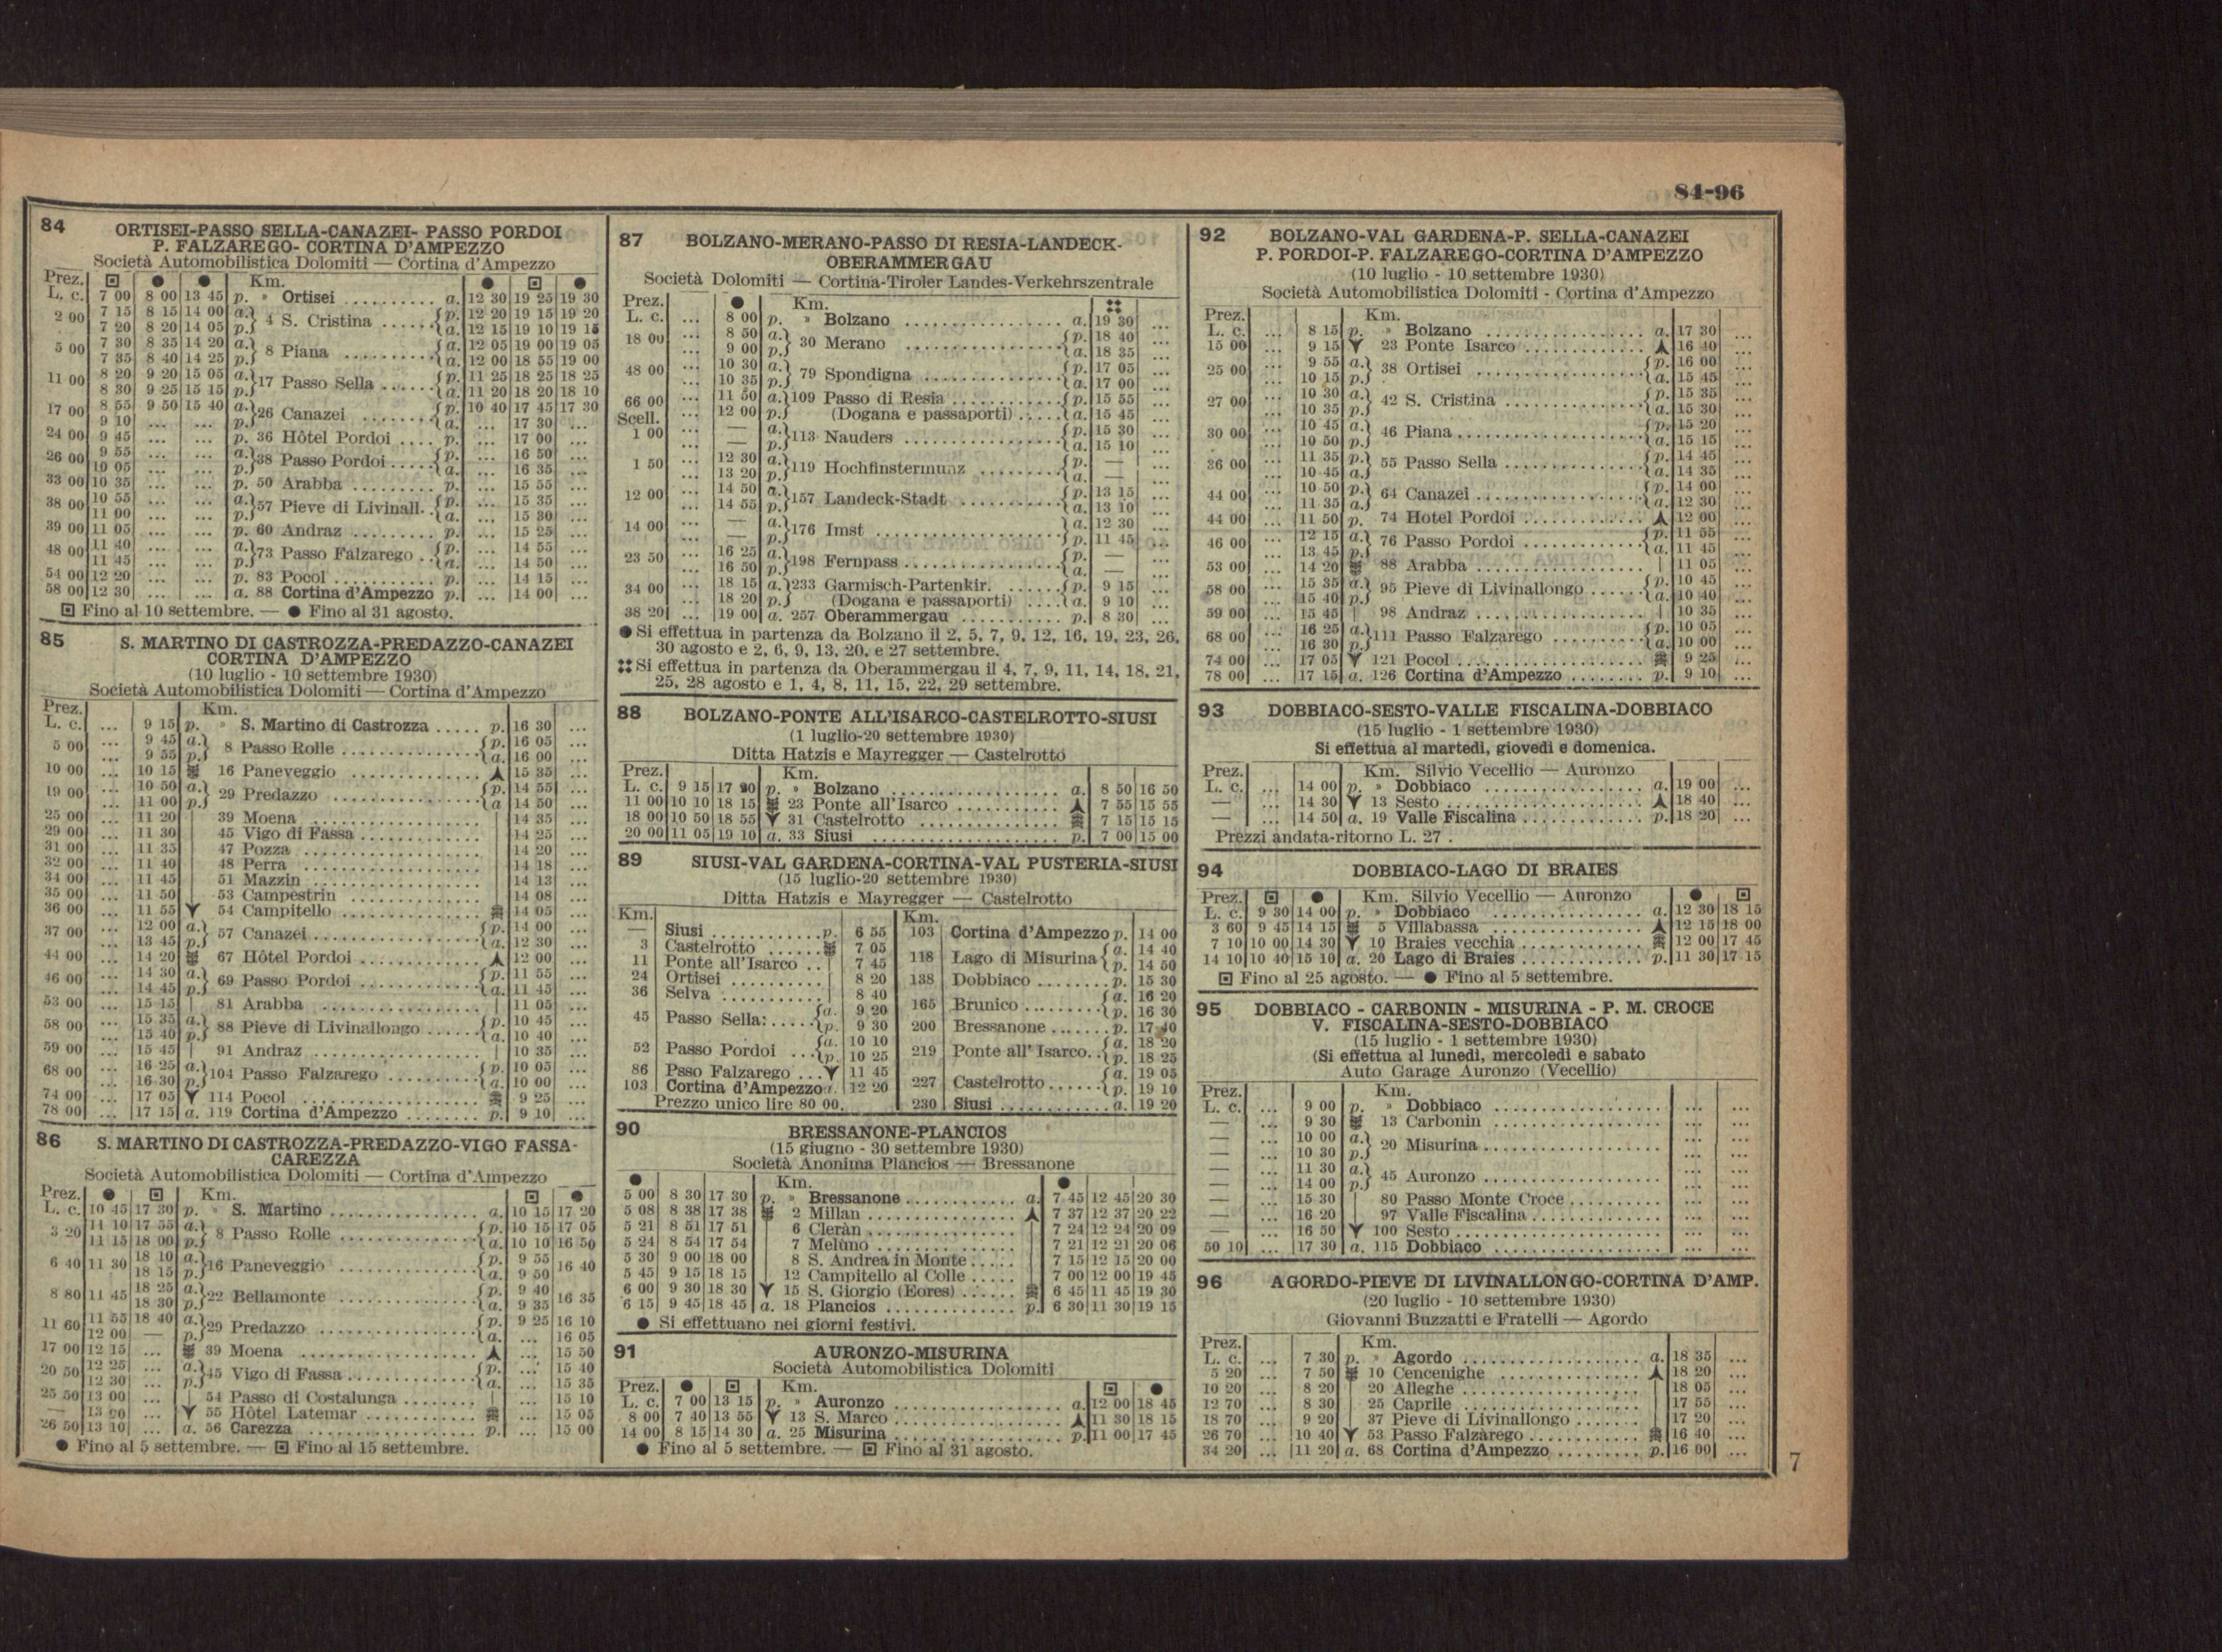 84-96
84 ORTISEI-PASSO SELLA-CANAZEI- PASSO PORDOI
P. FALZAREGO- CORTINA D'AMPEZZO
Società Automobilistica Dolomiti — Cortina d'Ampezzo
Prez. Km.
L. c. 7 00 8 00 13 45 p. » Ortisei .......... a. 12 30 19 25 19 30
2 00 7 15 8 15 14 00 a. 4 S. Cristina ...... p. 12 20 19 15 19 20
7 20 8 20 14 05 p. a. 12 15 19 10 19 15
5 00 7 30 8 35 14 20 a. 8 Piana .......... a. 12 05 19 00 19 05
7 35 8 40 14 25 p. a. 12 00 18 55 19 00
11 00 8 20 9 20 15 05 a. 17 Passo Sella ...... p. 11 25 18 25 18 25
8 30 9 25 15 15 p. a. 11 20 18 20 18 10
17 00 8 55 9 50 15 40 a. 26 Canazei ........ p. 10 40 17 45 17 30
9 10 ... ... p. a. ... 17 30 ...
24 00 9 45 ... ... p. 36 Hôtel Pordoi .... p. ... 17 00 ...
26 00 9 55 ... ... a. 38 Passo Pordoi ..... p. ... 16 50 ...
10 05 ... ... p. a. ... 16 35 ...
33 00 10 35 ... ... p. 50 Arabba ......... p. ... 15 55 ...
38 00 10 55 ... ... a. 57 Pieve di Livinall. .. p. ... 15 35 ...
11 00 ... ... p. a. ... 15 30 ...
39 00 11 05 ... ... p. 60 Andraz .......... p. ... 15 25 ...
48 00 11 40 ... ... a. 73 Passo Falzarego .. p. ... 14 55 ...
11 45 ... ... p. a. ... 14 50 ...
54 00 12 20 ... ... p. 83 Pocol ........... p. ... 14 15 ...
58 00 12 30 ... ... a. 88 Cortina d'Ampezzo p. ... 14 00 ...
⊡ Fino al 10 settembre. — ● Fino al 31 agosto.
85 S. MARTINO DI CASTROZZA-PREDAZZO-CANAZEI
CORTINA D'AMPEZZO
(10 luglio - 10 settembre 1930)
Società Automobilistica Dolomiti — Cortina d'Ampezzo
Prez. Km.
L. c. ... 9 15 p. » S. Martino di Castrozza ..... p. 16 30 ...
5 00 ... 9 45 a. 8 Passo Rolle .............. p. 16 05 ...
... 9 55 p. a. 16 00 ...
10 00 ... 10 15 16 Paneveggio ............. 15 35 ...
19 00 ... 10 50 a. 29 Predazzo ............... p. 14 55 ...
... 11 00 p. a 14 50 ...
25 00 ... 11 20 39 Moena ................. 14 35 ...
29 00 ... 11 30 45 Vigo di Fassa ............ 14 25 ...
31 00 ... 11 35 47 Pozza .................. 14 20 ...
32 00 ... 11 40 48 Perra .................. 14 18 ...
34 00 ... 11 45 51 Mazzin ................. 14 13 ...
35 00 ... 11 50 53 Campestrin ............. 14 08 ...
36 00 ... 11 55 54 Campitello .............. 14 05 ...
37 00 ... 12 00 a. 57 Canazei ................. p. 14 00 ...
... 13 45 p. a. 12 30 ...
44 00 ... 14 20 67 Hôtel Pordoi ............ 12 00 ...
46 00 ... 14 30 a. 69 Passo Pordoi ............ p. 11 55 ...
... 14 45 p. a. 11 45 ...
53 00 ... 15 15 81 Arabba ................ 11 05 ...
58 00 ... 15 35 a. 88 Pieve di Livinallongo ...... p. 10 45 ...
... 15 40 p. a. 10 40 ...
59 00 ... 15 45 91 Andraz ................. 10 35 ...
68 00 ... 16 25 a. 104 Passo Falzarego .......... p. 10 05 ...
... 16 30 p. a. 10 00 ...
74 00 ... 17 05 114 Pocol .................. 9 25 ...
78 00 ... 17 15 a. 119 Cortina d'Ampezzo ........ p. 9 10 ...
86 S. MARTINO DI CASTROZZA-PREDAZZO-VIGO FASSA-
CAREZZA
Società Automobilistica Dolomiti — Cortina d'Ampezzo
Prez. ● ⊡ Km. ⊡ ●
L. c. 10 45 17 30 p. » S. Martino ................ a. 10 15 17 20
3 20 11 10 17 55 a. 8 Passo Rolle ............... p. 10 15 17 05
11 15 18 00 p. a. 10 10 16 50
6 40 11 30 18 10 a. 16 Paneveggio ............... p. 9 55 16 40
18 15 p. a. 9 50
8 80 11 45 18 25 a. 22 Bellamonte ............... p. 9 40 16 35
18 30 p. a. 9 35
11 60 11 55 18 40 a. 29 Predazzo ................. p. 9 25 16 10
12 00 — p. a. ... 16 05
17 00 12 15 ... 39 Moena ................... ... 15 50
20 50 12 25 ... a. 45 Vigo di Fassa .............. p. ... 15 40
12 30 ... p. a. ... 15 35
25 50 13 00 ... 54 Passo di Costalunga ........ ... 15 10
— 13 00 ... 55 Hôtel Latemar ............ ... 15 05
26 50 13 10 ... a. 56 Carezza .................. p. ... 15 00
● Fino al 5 settembre. — ⊡ Fino al 15 settembre.
87 BOLZANO-MERANO-PASSO DI RESIA-LANDECK-
OBERAMMERGAU
Società Dolomiti — Cortina-Tiroler Landes-Verkehrszentrale
Prez. ● Km.
L. c. ... 8 00 p. » Bolzano ................. a. 19 30 ...
18 00 ... 8 50 a. 30 Merano ................ p. 18 40 ...
... 9 00 p. a. 18 35 ...
48 00 ... 10 30 a. 79 Spondigna .............. p. 17 05 ...
... 10 35 p. a. 17 00 ...
66 00 ... 11 50 a. 109 Passo di Resia ........... p. 15 55 ...
Scell. ... 12 00 p. (Dogana e passaporti) ..... a. 15 45 ...
1 00 ... — a. 113 Nauders ................. p. 15 30 ...
... — p. a. 15 10 ...
1 50 ... 12 30 a. 119 Hochfinstermunz ......... p. — ...
... 13 20 p. a. — ...
12 00 ... 14 50 a. 157 Landeck-Stadt ........... p. 13 15 ...
... 14 55 p. a. 13 10 ...
14 00 ... — a. 176 Imst .................... a. 12 30 ...
... — p. p. 11 45 ...
23 50 ... 16 25 a. 198 Fernpass ................. p. — ...
... 16 50 p. a. — ...
34 00 ... 18 15 a. 233 Garmisch-Partenkir. ...... p. 9 15 ...
... 18 20 p. (Dogana e passaporti) .... a. 9 10 ...
38 20 ... 19 00 a. 257 Oberammergau .......... p. 8 30 ...
● Si effettua in partenza da Bolzano il 2, 5, 7, 9, 12, 16, 19, 23, 26,
30 agosto e 2, 6, 9, 13, 20, e 27 settembre.
Si effettua in partenza da Oberammergau il 4, 7, 9, 11, 14, 18, 21,
25, 28 agosto e 1, 4, 8, 11, 15, 22, 29 settembre.
88 BOLZANO-PONTE ALL'ISARCO-CASTELROTTO-SIUSI
(1 luglio-20 settembre 1930)
Ditta Hatzis e Mayregger — Castelrotto
Prez. Km.
L. c. 9 15 p. » Bolzano ................... a. 8 50 16 50
11 00 10 10 18 15 23 Ponte all'Isarco .......... 7 55 15 55
18 00 10 50 18 55 31 Castelrotto .............. 7 15 15 15
20 00 11 05 19 10 a. 33 Siusi .................... p. 7 00 15 00
89 SIUSI-VAL GARDENA-CORTINA-VAL PUSTERIA-SIUSI
(15 luglio-20 settembre 1930)
Ditta Hatzis e Mayregger — Castelrotto
Km. Km.
— Siusi ............p. 6 55 103 Cortina d'Ampezzo p. 14 00
3 Castelrotto ...... 7 05 118 Lago di Misurina a. 14 40
11 Ponte all'Isarco .. 7 45 p. 14 50
24 Ortisei .......... 8 20 138 Dobbiaco ........ p. 15 30
36 Selva ........... 8 40 165 Brunico ......... a. 16 20
45 Passo Sella: ..... a. 9 20 p. 16 30
p. 9 30 200 Bressanone ....... p. 17 40
52 Passo Pordoi ... a. 10 10 219 Ponte all' Isarco. .. a. 18 20
p. 10 25 p. 18 25
86 Psso Falzarego ... 11 45 227 Castelrotto ...... a. 19 05
103 Cortina d'Ampezzo a. 12 20 p. 19 10
Prezzo unico lire 80 00. 230 Siusi ............ a. 19 20
90 BRESSANONE-PLANCIOS
(15 giugno - 30 settembre 1930)
Società Anonima Plancios — Bressanone
● Km. ●
5 00 8 30 17 30 p. » Bressanone ............ a. 7 45 12 45 20 30
5 08 8 38 17 38 2 Millan ................ 7 37 12 37 20 22
5 21 8 51 17 51 6 Cleràn ................ 7 24 12 24 20 09
5 24 8 54 17 54 7 Melùno ............... 7 21 12 21 20 06
5 30 9 00 18 00 8 S. Andrea in Monte ..... 7 15 12 15 20 00
5 45 9 15 18 15 12 Campitello al Colle ..... 7 00 12 00 19 45
6 00 9 30 18 30 15 S. Giorgio (Eores) ...... 6 45 11 45 19 30
6 15 9 45 18 45 a. 18 Plancios .............. p. 6 30 11 30 19 15
● Si effettuano nei giorni festivi.
91 AURONZO-MISURINA
Società Automobilistica Dolomiti
Prez. ● ⊡ Km. ⊡ ●
L. c. 7 00 13 15 p. » Auronzo ................... a. 12 00 18 45
8 00 7 40 13 55 13 S. Marco .................. 11 30 18 15
14 00 8 15 14 30 a. 25 Misurina .................. p. 11 00 17 45
● Fino al 5 settembre. — ⊡ Fino al 31 agosto.
92 BOLZANO-VAL GARDENA-P. SELLA-CANAZEI
P. PORDOI-P. FALZAREGO-CORTINA D'AMPEZZO
(10 luglio - 10 settembre 1930)
Società Automobilistica Dolomiti - Cortina d'Ampezzo
Prez. Km.
L. c. ... 8 15 p. » Bolzano ................ a. 17 30 ...
15 00 ... 9 15 23 Ponte Isarco ............ 16 40 ...
25 00 ... 9 55 a. 38 Ortisei ................. p. 16 00 ...
... 10 15 p. a. 15 45 ...
27 00 ... 10 30 a. 42 S. Cristina .............. p. 15 35 ...
... 10 35 p. a. 15 30 ...
30 00 ... 10 45 a. 46 Piana ................... p. 15 20 ...
... 10 50 p. a. 15 15 ...
36 00 ... 11 35 p. 55 Passo Sella .............. p. 14 45 ...
... 10 45 a. a. 14 35 ...
44 00 ... 10 50 p. 64 Canazei ................. p. 14 00 ...
... 11 35 a. a. 12 30 ...
44 00 ... 11 50 p. 74 Hotel Pordoi ............ 12 00 ...
46 00 ... 12 15 a. 76 Passo Pordoi ............ p. 11 55 ...
... 13 45 p. a. 11 45 ...
53 00 ... 14 20 88 Arabba ................. 11 05 ...
58 00 ... 15 35 a. 95 Pieve di Livinallongo ...... p. 10 45 ...
... 15 40 p. a. 10 40 ...
59 00 ... 15 45 98 Andraz ................. 10 35 ...
68 00 ... 16 25 a. 111 Passo Falzarego .......... p. 10 05 ...
... 16 30 p. a. 10 00 ...
74 00 ... 17 05 121 Pocol ................... 9 25 ...
78 00 ... 17 15 a. 126 Cortina d'Ampezzo ........ p. 9 10 ...
93 DOBBIACO-SESTO-VALLE FISCALINA-DOBBIACO
(15 luglio - 1 settembre 1930)
Si effettua al martedì, giovedì e domenica.
Prez. Km. Silvio Vecellio — Auronzo
L. c. ... 14 00 p. » Dobbiaco ................ a. 19 00 ...
— ... 14 30 13 Sesto ................... 18 40 ...
— ... 14 50 a. 19 Valle Fiscalina ............ p. 18 20 ...
Prezzi andata-ritorno L. 27 .
94 DOBBIACO-LAGO DI BRAIES
Prez. ⊡ ● Km. Silvio Vecellio — Auronzo ● ⊡
L. c. 9 30 14 00 p. » Dobbiaco ............... a. 12 30 18 15
3 60 9 45 14 15 5 Villabassa .............. 12 15 18 00
7 10 10 00 14 30 10 Braies vecchia ........... 12 00 17 45
14 10 10 40 15 10 a. 20 Lago di Braies ........... p. 11 30 17 15
⊡ Fino al 25 agosto. — ● Fino al 5 settembre.
95 DOBBIACO - CARBONIN - MISURINA - P. M. CROCE
V. FISCALINA-SESTO-DOBBIACO
(15 luglio - 1 settembre 1930)
(Si effettua al lunedì, mercoledì e sabato
Auto Garage Auronzo (Vecellio)
Prez. Km.
L. c. ... 9 00 p. » Dobbiaco ................. ... ...
— ... 9 30 13 Carbonin ................. ... ...
— ... 10 00 a. 20 Misurina .................. ... ...
— ... 10 30 p.
— ... 11 30 a. 45 Auronzo .................. ... ...
— ... 14 00 p.
— ... 15 30 80 Passo Monte Croce ......... ... ...
— ... 16 20 97 Valle Fiscalina ............. ... ...
— ... 16 50 100 Sesto .................... ... ...
50 10 ... 17 30 a. 115 Dobbiaco ................. ... ...
96 AGORDO-PIEVE DI LIVINALLONGO-CORTINA D'AMP.
(20 luglio - 10 settembre 1930)
Giovanni Buzzatti e Fratelli — Agordo
Prez. Km.
L. c. ... 7 30 p. » Agordo .................. a. 18 35 ...
5 20 ... 7 50 10 Cencenighe .............. 18 20 ...
10 20 ... 8 20 20 Alleghe .................. 18 05 ...
12 70 ... 8 30 25 Caprile .................. 17 55 ...
18 70 ... 9 20 37 Pieve di Livinallongo ....... 17 20 ...
26 70 ... 10 40 53 Passo Falzàrego ........... 16 40 ...
34 20 ... 11 20 a. 68 Cortina d'Ampezzo ......... p. 16 00 ...
7